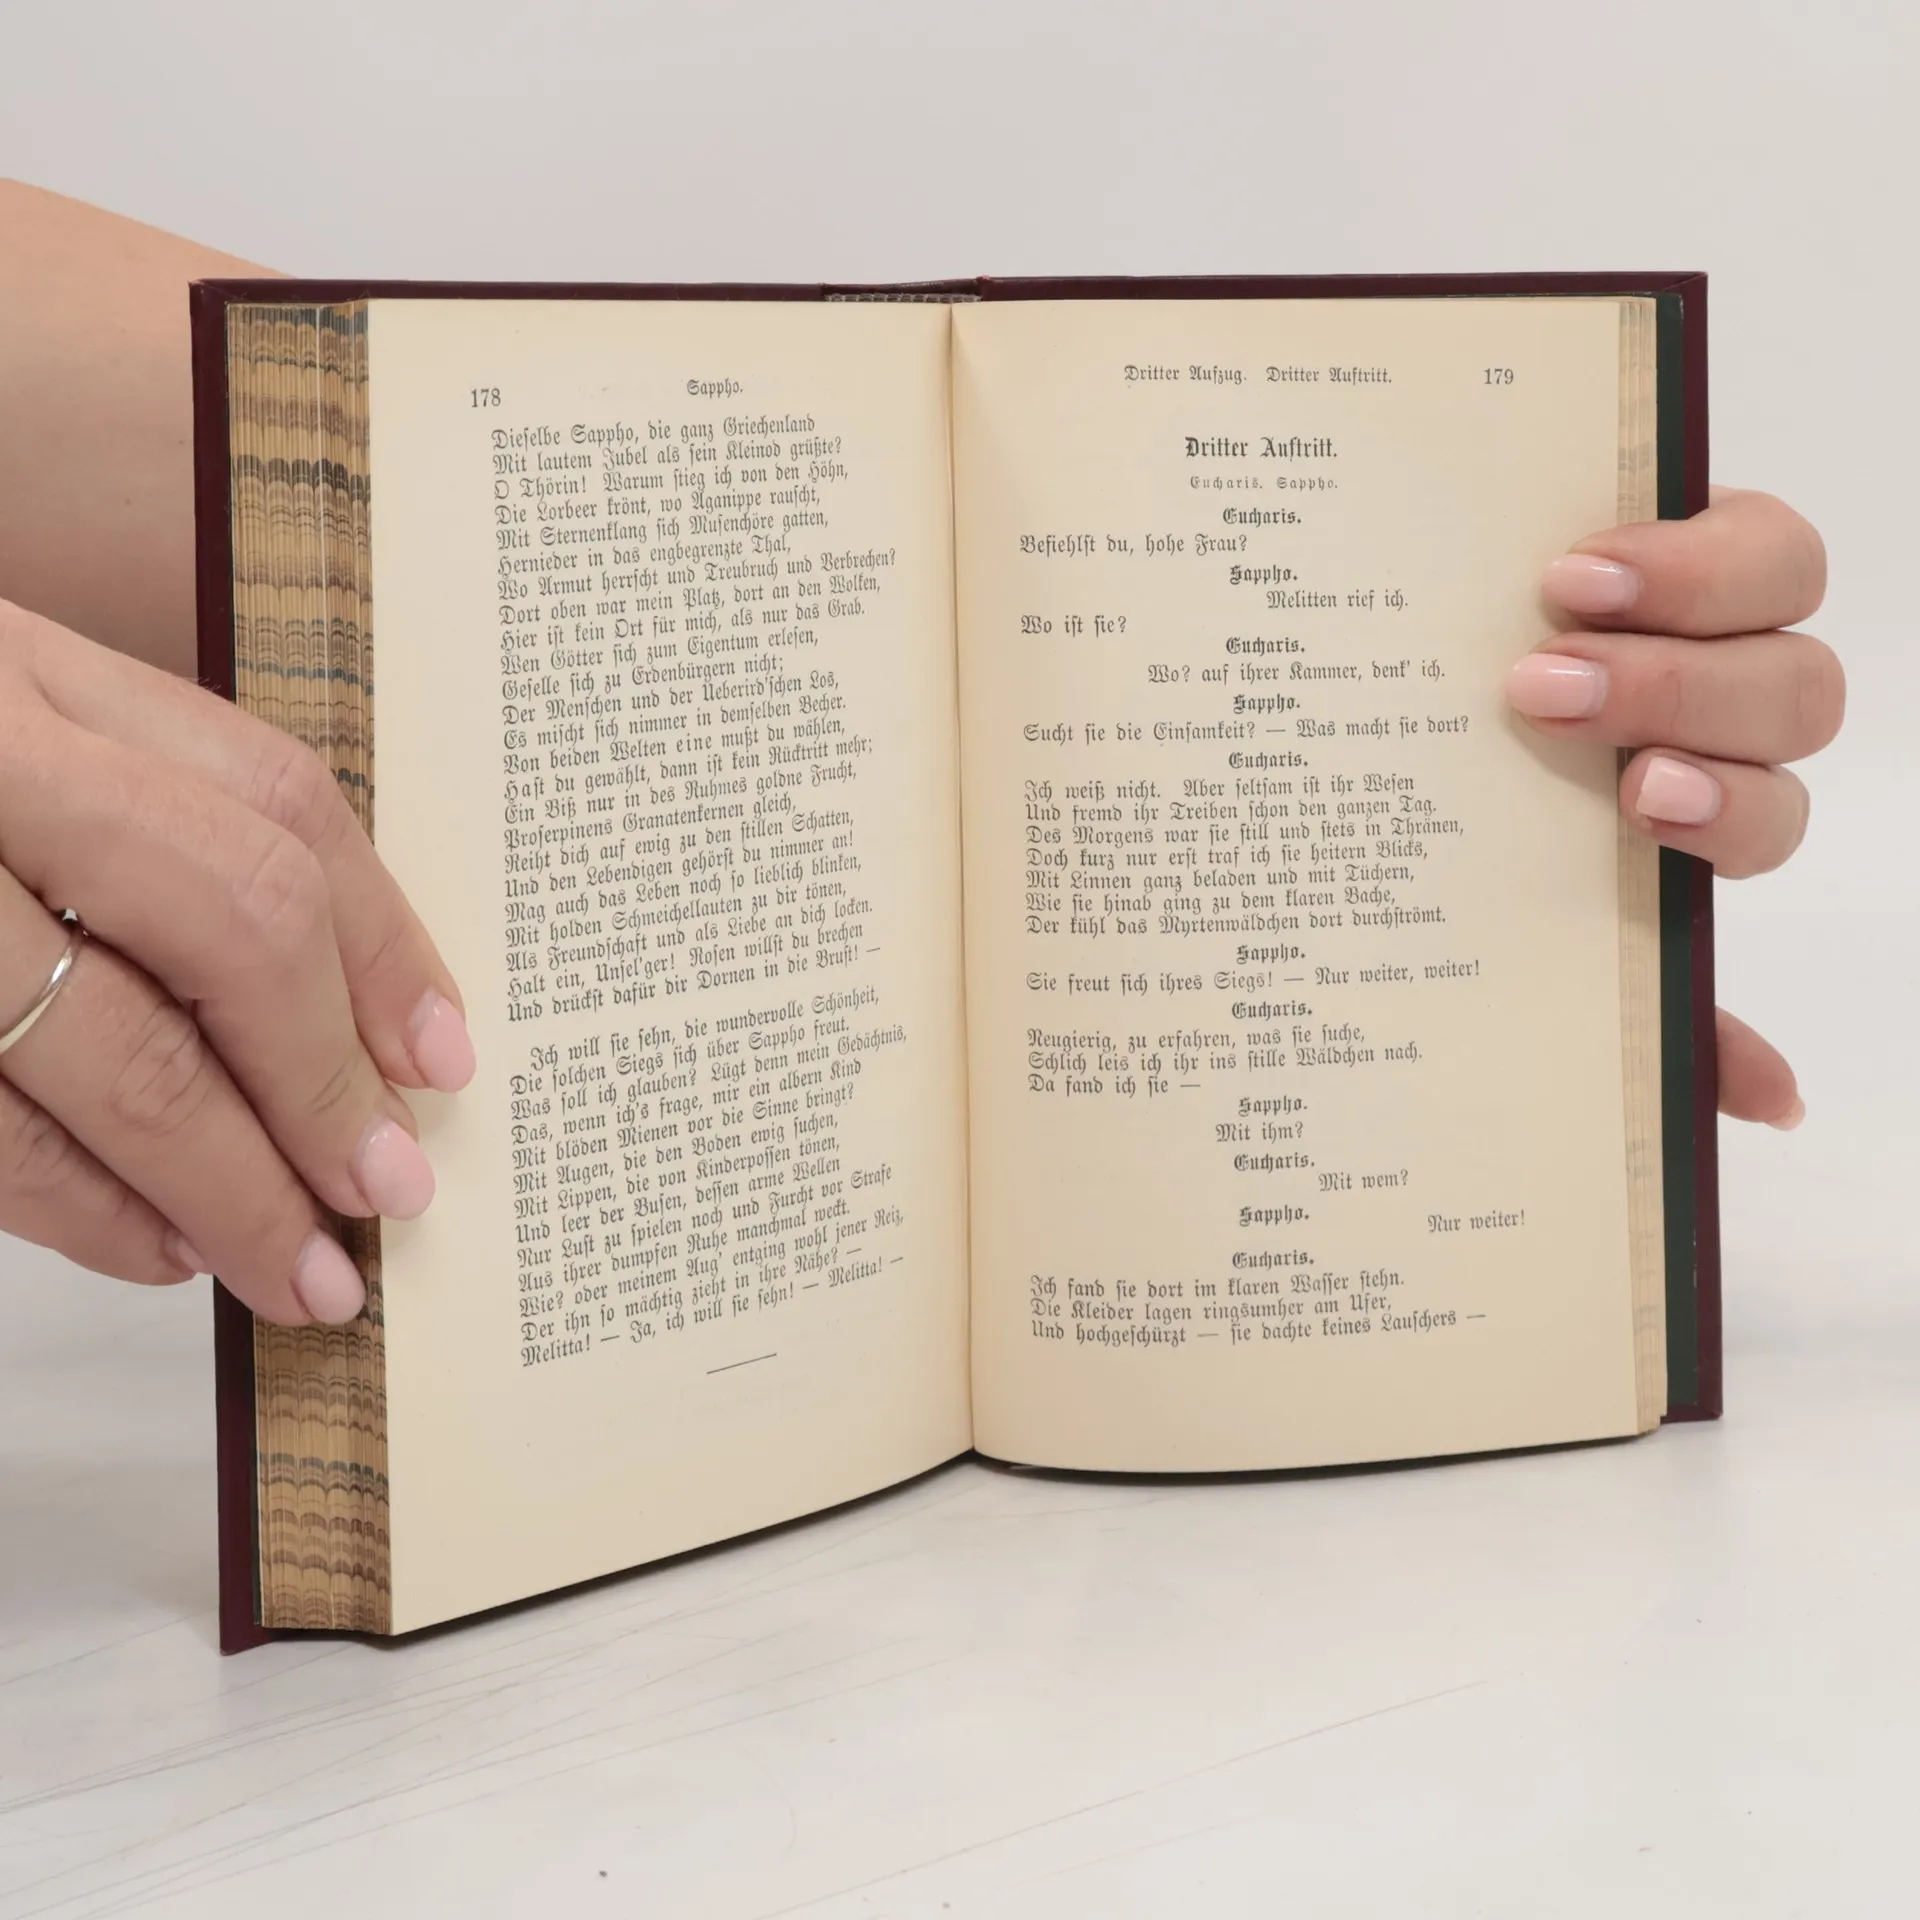 178
Sappho.
Dieſelbe Sappho, die ganz Griechenland
Mit lautem Jubel als ſein Kleinod grüßte?
O Thörin! Warum ſtieg ich von den Höhn,
Die Lorbeer krönt, wo Aganippe rauſcht,
Mit Sternenklang ſich Muſenchöre gatten,
Hernieder in das engbegrenzte Thal,
Wo Armut herrſcht und Treubruch und Verbrechen?
Dort oben war mein Platz, dort an den Wolken,
Hier iſt kein Ort für mich, als nur das Grab.
Wen Götter ſich zum Eigentum erleſen,
Geſelle ſich zu Erdenbürgern nicht;
Der Menſchen und der Ueberird'ſchen Los,
Es miſcht ſich nimmer in demſelben Becher.
Von beiden Welten eine mußt du wählen,
Haſt du gewählt, dann iſt kein Rücktritt mehr;
Ein Biß nur in des Ruhmes goldne Frucht,
Proſerpinens Granatenkernen gleich,
Reiht dich auf ewig zu den ſtillen Schatten,
Und den Lebendigen gehörſt du nimmer an!
Mag auch das Leben noch ſo lieblich blinken,
Mit holden Schmeichellauten zu dir tönen,
Als Freundſchaft und als Liebe an dich locken.
Halt ein, Unſel'ger! Roſen willſt du brechen
Und drückſt dafür dir Dornen in die Bruſt! —
Ich will ſie ſehn, die wundervolle Schönheit,
Die ſolchen Siegs ſich über Sappho freut.
Was ſoll ich glauben? Lügt denn mein Gedächtnis,
Das, wenn ich's frage, mir ein albern Kind
Mit blöden Mienen vor die Sinne bringt?
Mit Augen, die den Boden ewig ſuchen,
Mit Lippen, die von Kinderpoſſen tönen,
Und leer der Buſen, deſſen arme Wellen
Nur Luſt zu ſpielen noch und Furcht vor Strafe
Aus ihrer dumpfen Ruhe manchmal weckt.
Wie? oder meinem Aug' entging wohl jener Reiz,
Der ihn ſo mächtig zieht in ihre Nähe? —
Melitta! — Ja, ich will ſie ſehn! — Melitta! —
Dritter Aufzug. Dritter Auftritt.
179
Dritter Auftritt.
Eucharis. Sappho.
Eucharis.
Befiehlſt du, hohe Frau?
Sappho.
Melitten rief ich.
Wo iſt ſie?
Eucharis.
Wo? auf ihrer Kammer, denk' ich.
Sappho.
Sucht ſie die Einſamkeit? — Was macht ſie dort?
Eucharis.
Ich weiß nicht. Aber ſeltſam iſt ihr Weſen
Und fremd ihr Treiben ſchon den ganzen Tag.
Des Morgens war ſie ſtill und ſtets in Thränen,
Doch kurz nur erſt traf ich ſie heitern Blicks,
Mit Linnen ganz beladen und mit Tüchern,
Wie ſie hinab ging zu dem klaren Bache,
Der kühl das Myrtenwäldchen dort durchſtrömt.
Sappho.
Sie freut ſich ihres Siegs! — Nur weiter, weiter!
Eucharis.
Neugierig, zu erfahren, was ſie ſuche,
Schlich leis ich ihr ins ſtille Wäldchen nach.
Da fand ich ſie —
Sappho.
Mit ihm?
Eucharis.
Mit wem?
Sappho.
Nur weiter!
Eucharis.
Ich fand ſie dort im klaren Waſſer ſtehn.
Die Kleider lagen ringsumher am Ufer,
Und hochgeſchürzt — ſie dachte keines Lauſchers —